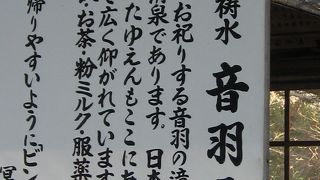 祷水 音羽
お祀りする音羽の
泉であります。日本
たゆえんもここにあ
広く仰がれています
お茶・粉ミルク・服薬
帰りやすいようにビン